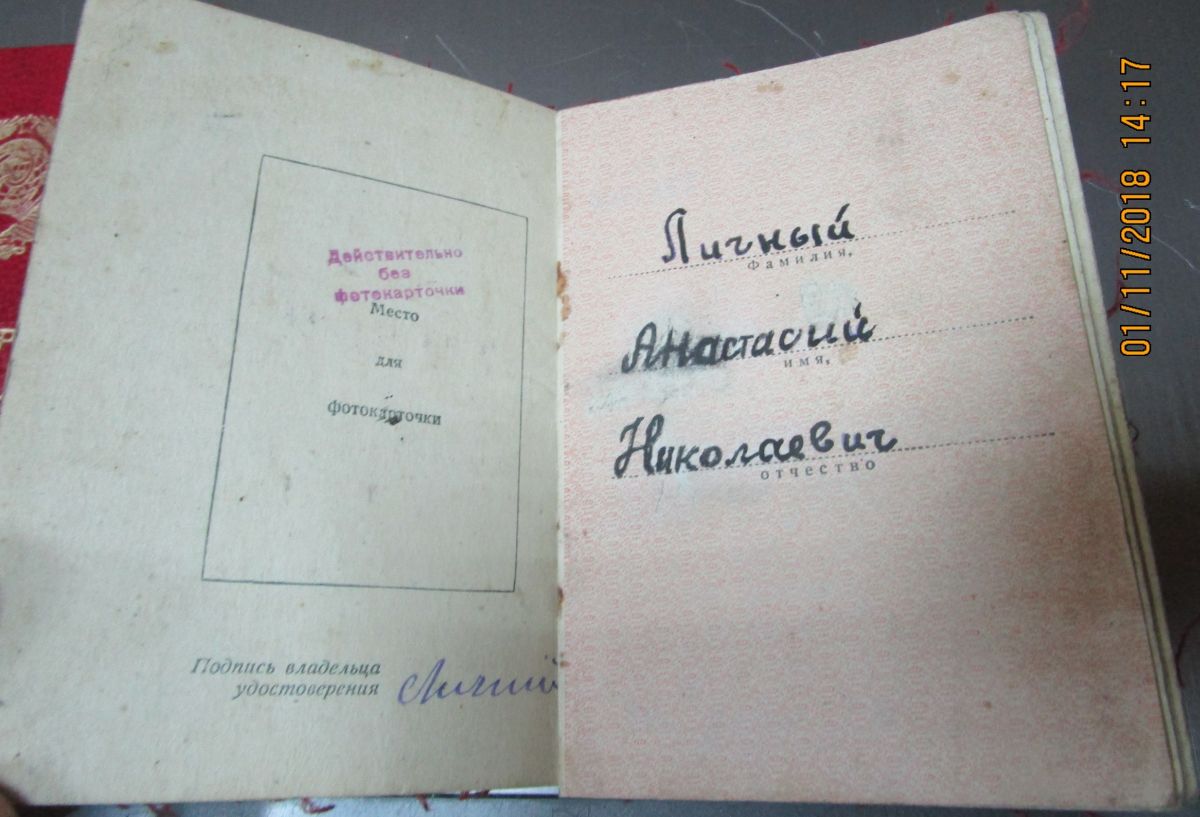 Действительно
без
фотокарточки
Место
для
фотокарточки
Подпись владельца
удостоверения
Личный
Личный
Фамилия,
Анастасий
имя,
Николаевич
отчество
01/11/2018 14:17